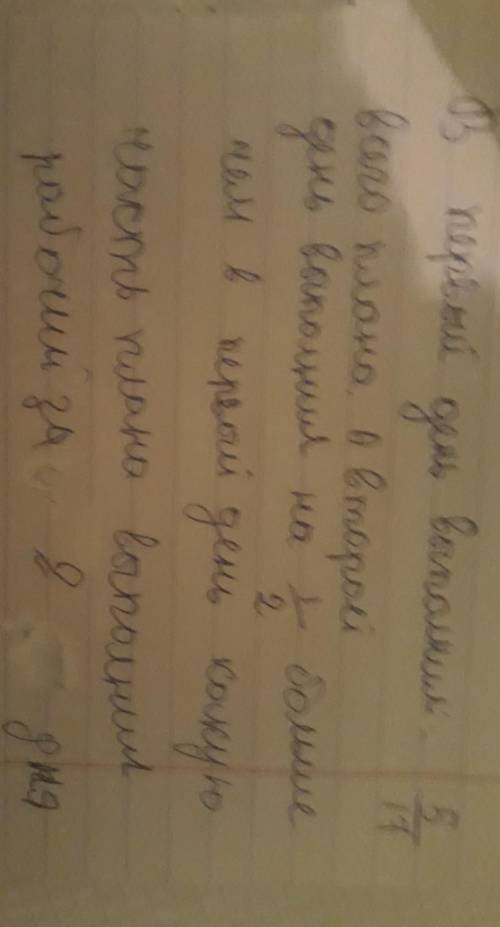 В первый день выполнил. 5/17
всего плана, а второй
день выполнил на 1/2 больше
чем в первый день какую
часть плана выполнил
рабочий за 2 дня